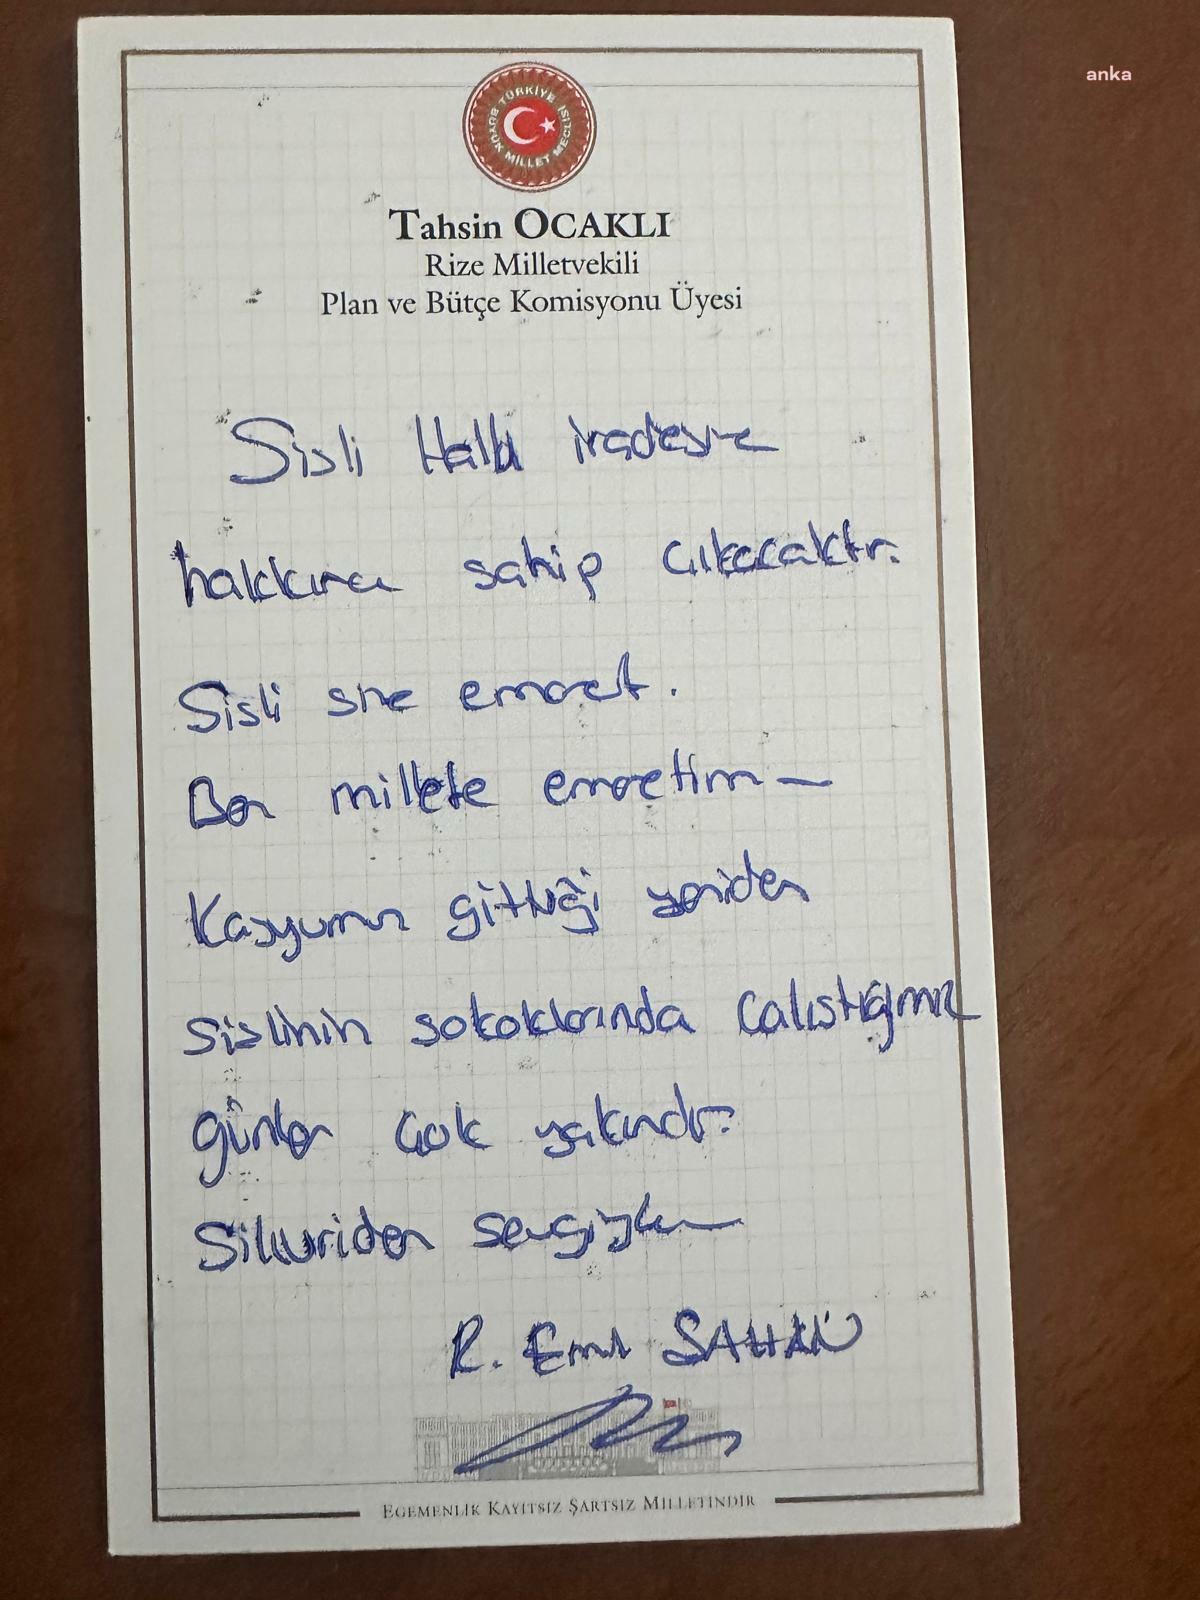 anka
TÜRKİYE BÜYÜK MİLLET MECLİSİ
Tahsin OCAKLI
Rize Milletvekili
Plan ve Bütçe Komisyonu Üyesi
Sisli Halkı iradesine
hakkına sahip çıkacaktır.
Sisli size emanet.
Ben millete emanetim
Kayyumun gittiği yeniden
sislinin sokaklarında calıstığımız
günler çok yakındır.
Silivriden sevgiyle
R. Emrah SAHAN
EGEMENLİK KAYITSIZ ŞARTSIZ MİLLETİNDİR